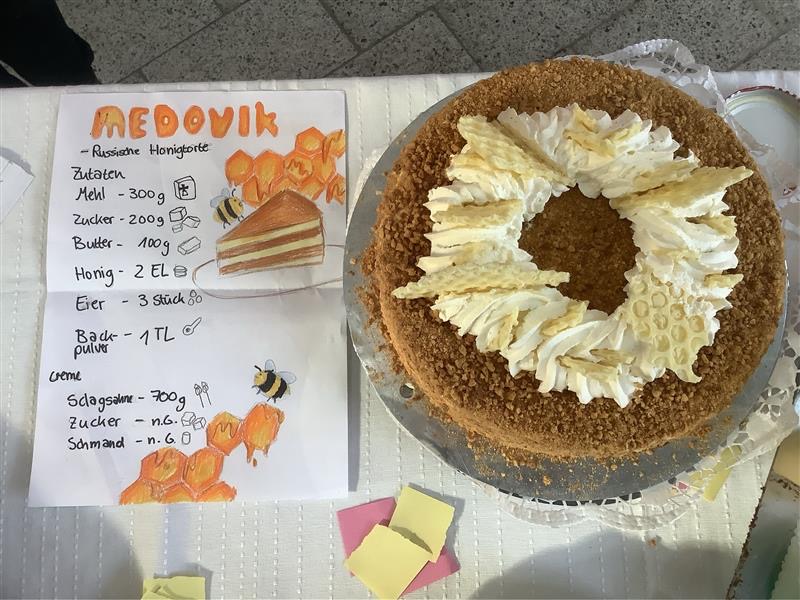 MEDOVIK
- Russische Honigtorte
Zutaten
Mehl - 300g
Zucker - 200g
Butter - 100g
Honig - 2 EL
Eier - 3 Stück
Back-
pulver - 1 TL
Creme
Sclagsahne - 700g
Zucker - n.G.
Schmand - n.G.